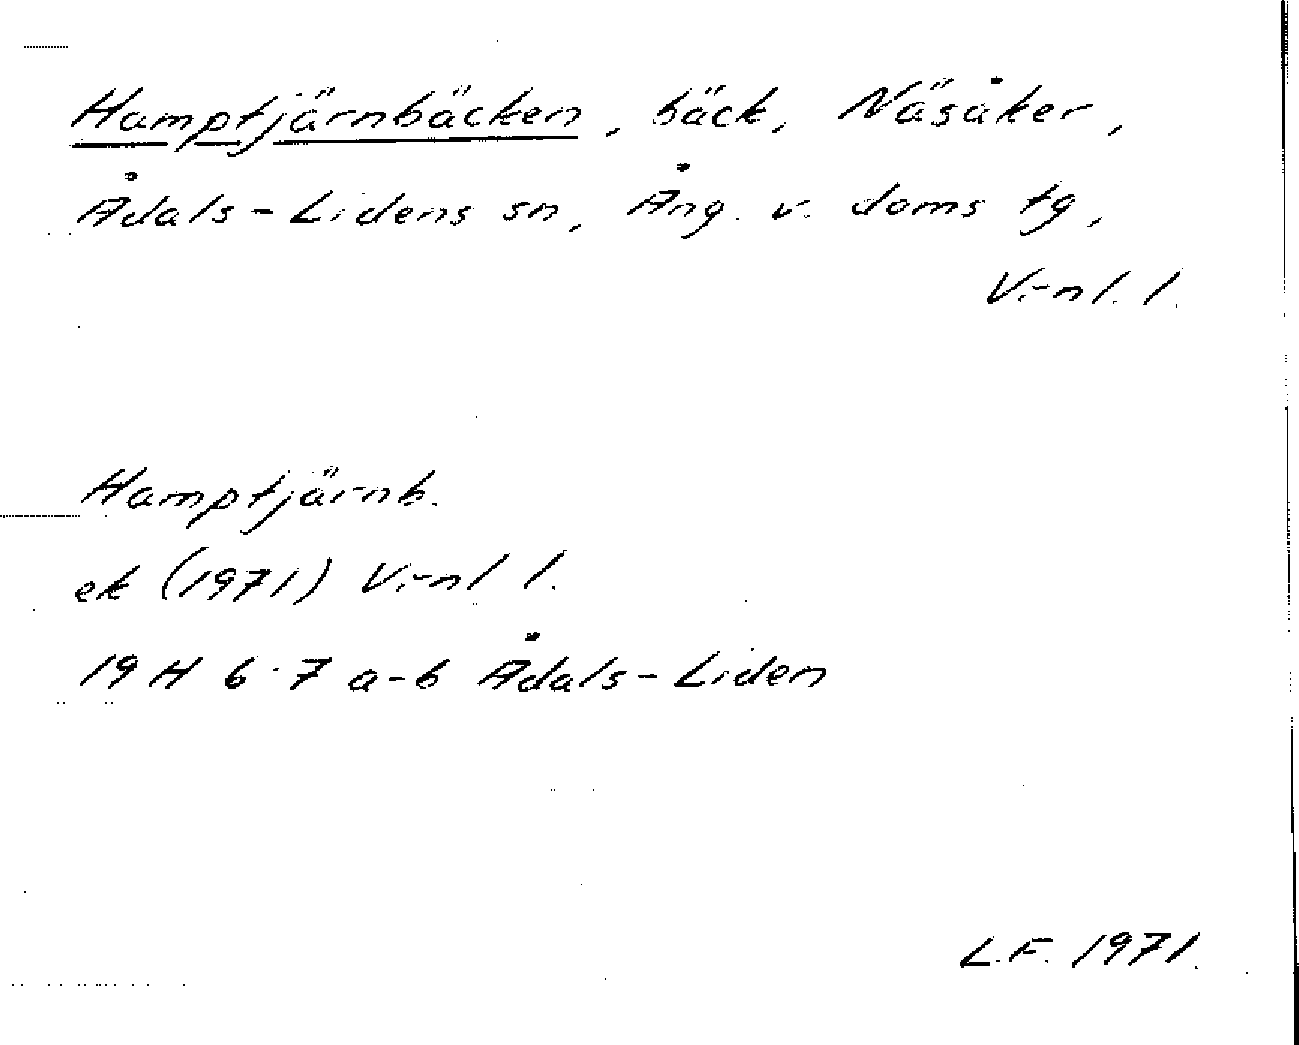 Hamptjärnbäcken, bäck, Näsåker,
Ådals-Lidens sn, Ång. v. doms tg,
V.-nl. l.
Hamptjärnb.
ek (1971) V.-nl l.
19 H 6-7 a-b Ådals-Liden
L.F. 1971.